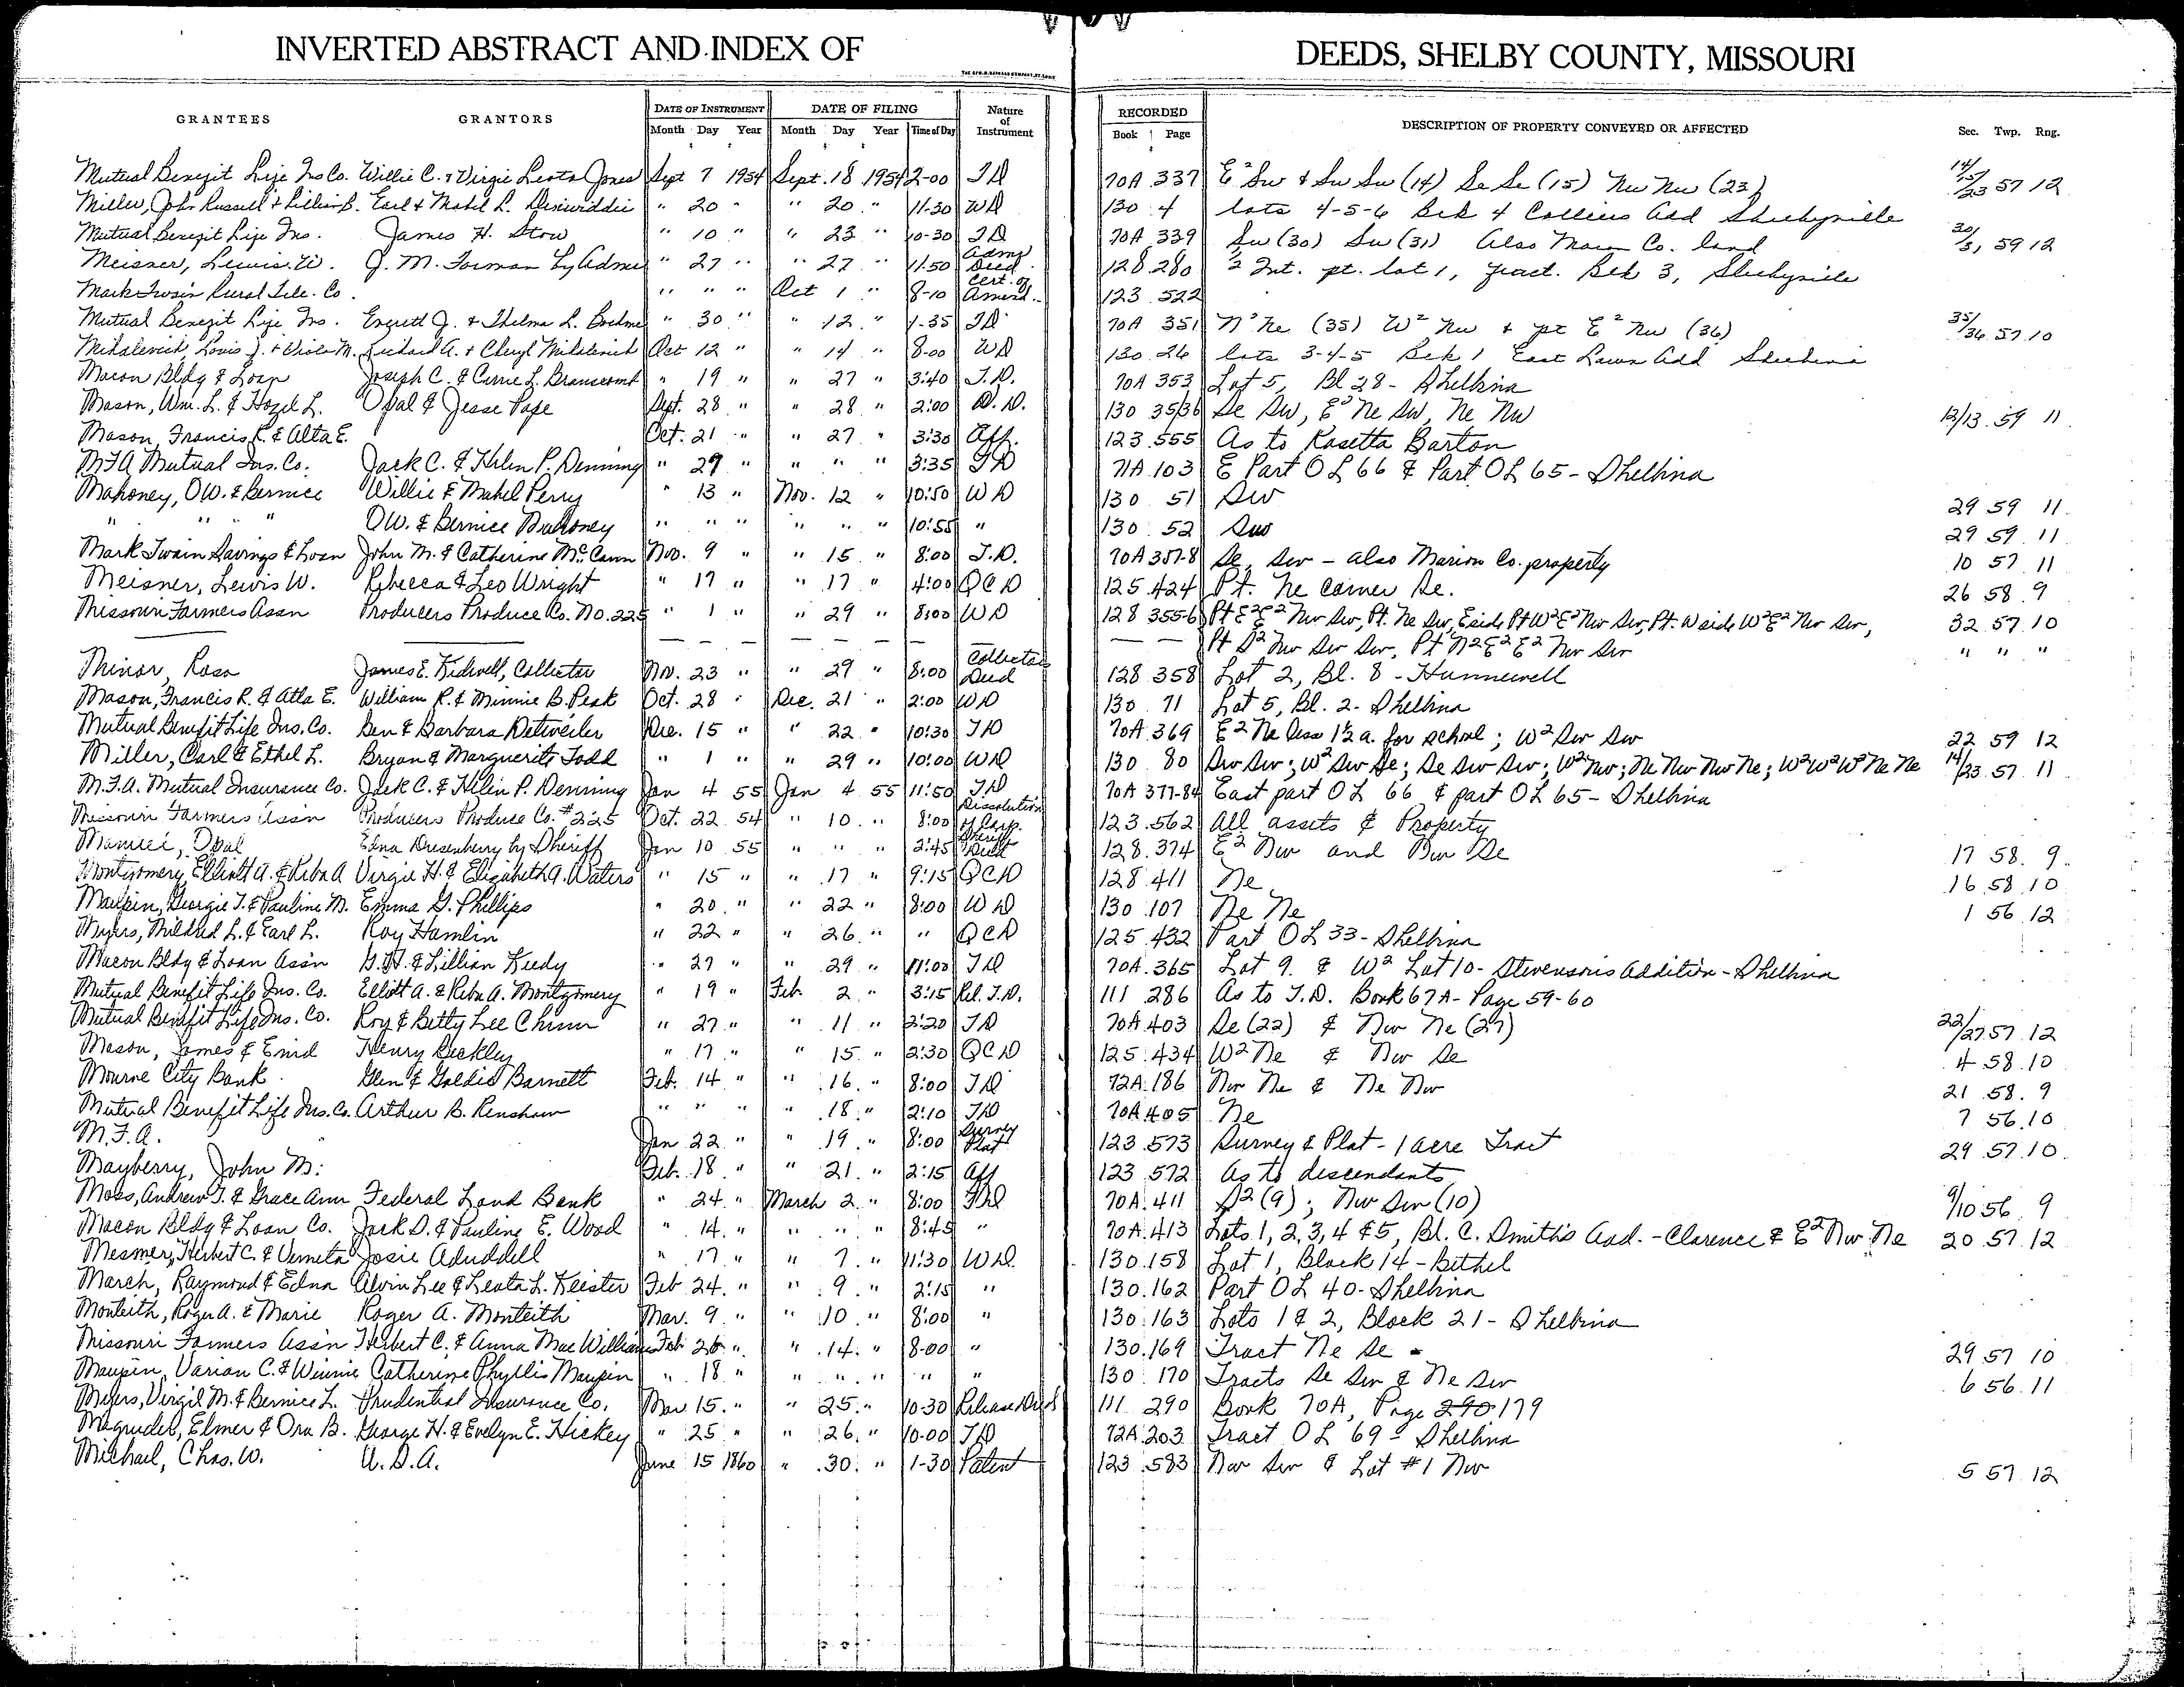 INVERTED ABSTRACT AND INDEX OF DEEDS, SHELBY COUNTY, MISSOURI
GRANTEES GRANTORS DATE OF INSTRUMENT DATE OF FILING Nature of Instrument RECORDED DESCRIPTION OF PROPERTY CONVEYED OR AFFECTED Sec. Twp. Rng.
Month Day Year Month Day Year Time of Day Book Page
Mutual Benefit Life Ins Co. Willie C. + Virgie Leota Jones Sept 7 1954 Sept. 18 1954 2-00 TD 70A 337 E² Sw & Sw Sw (14) Se Se (15) Nw Nw (23) 14/15/23 57 12
Miller, John Russell + Lillian B. Earl + Mabel L. Dinwiddie " 20 " " 20 " 11-30 WD 130 4 lots 4-5-6 Blk 4 Collins Add Shelbyville
Mutual Benefit Life Ins. James H. Stow " 10 " " 23 " 10-30 TD 70A 339 Sw (30) Sw (31) Also Macon Co. land 30/31 59 12
Meisner, Lewis W. J. M. Forman by Adms " 27 " " 27 " 11-50 Adms Deed 128 280 ½ Int. pt. lot 1, fract. Blk 3, Shelbyville
Mark Twain Rural Tele. Co. " " " Oct 1 " 8-10 Cert. of Amend. 123 522
Mutual Benefit Life Ins. Everett J. & Thelma L. Boehme " 30 " " 12 " 1-35 TD 70A 351 N² Ne (35) W² Nw + pt E² Nw (36) 35/36 57 10
Mihalevich, Louis J. + Viola M. Richard A. + Cheryl Mihalevich Oct 12 " " 14 " 8-00 WD 130 26 lots 3-4-5 Blk 1 East Lawn Add Shelbina
Macon Bldg & Loan Joseph C. & Carrie L. Branscomb " 19 " " 27 " 3:40 T.D. 70A 353 Lot 5, Bl 28 - Shelbina
Mason, Wm. L. & Hazel L. Opal & Jesse Pape Sept. 28 " " 28 " 2:00 W.D. 130 35/36 Se Sw, E² Ne Sw, Ne Nw 12/13 59 11
Mason, Francis R. & Alta E. Oct. 21 " " 27 " 3:30 Aff. 123 555 As to Rosetta Barton
MFA Mutual Ins. Co. Jack C. & Helen P. Denning " 29 " " " " 3:35 TD 71A 103 E Part OL 66 & Part OL 65 - Shelbina
Mahoney, OW. & Bernice Willie & Mabel Perry " 13 " Nov. 12 " 10:50 WD 130 51 Sw 29 59 11
" " " OW. & Bernice Mahoney " " " " " " 10:55 " 130 52 Sw 29 59 11
Mark Twain Savings & Loan John M. & Catherine McCann Nov. 9 " " 15 " 8:00 T.D. 70A 357-8 Se, Sw - also Marion Co. property 10 57 11
Meisner, Lewis W. Rebecca & Leo Wright " 17 " " 17 " 4:00 QCD 125 424 Pt. Ne corner Se. 26 58 9
Missouri Farmers Assn Producers Produce Co. No. 225 " 1 " " 29 " 8:00 WD 128 355-6 Pt E²E² Nw Sw, Pt. Ne Sw, E side Pt W²E² Nw Sw, Pt. W side W²E² Nw Sw, 32 57 10
— — — — — — — — — Pt S² Nw Sw Sw, Pt N²E²E² Nw Sw " " "
Minor, Rosa James E. Kidwell, Collector Nov. 23 " " 29 " 8:00 Collectors Deed 128 358 Lot 2, Bl. 8 - Hunnewell
Mason, Francis R. & Alta E. William R. & Minnie B. Peak Oct. 28 " Dec. 21 " 2:00 WD 130 71 Lot 5, Bl. 2 - Shelbina
Mutual Benefit Life Ins. Co. Ben & Barbara Detweiler Dec. 15 " " 22 " 10:30 TD 70A 369 E² Ne less 1½ a. for school; W² Sw Sw 22 59 12
Miller, Carl & Ethel L. Bryan & Marguerite Todd " 1 " " 29 " 10:00 WD 130 80 Sw Sw; W² Sw Se; Se Sw Sw; W² Nw; Ne Nw Nw Ne; W²W²W² Ne Ne 14/23 57 11
M.F.A. Mutual Insurance Co. Jack C. & Helen P. Denning Jan 4 55 Jan 4 55 11:50 TD 70A 377-84 East part OL 66 & part OL 65 - Shelbina
Missouri Farmers Assn Producers Produce Co. #225 Oct. 22 54 " 10 " 8:00 Dissolution of Corp. 123 562 All assets & Property
Opal Edna Dusenberry by Sheriff Jan 10 55 " " " 2:45 Sheriff Deed 128 374 E² Nw and Nw Se 17 58 9
Montgomery, Elliott A. & Reba A Virgie H. & Elizabeth A. Waters " 15 " " 17 " 9:15 QCD 128 411 Ne 16 58 10
Maupin, Georgie T. & Pauline M. Emma G. Phillips " 20 " " 22 " 8:00 WD 130 107 Ne Ne 1 56 12
Myers, Mildred L. & Earl L. Roy Hamlin " 22 " " 26 " " QCD 125 432 Part OL 33 - Shelbina
Macon Bldg & Loan Ass'n G.H. & Lillian Keedy " 27 " " 29 " 11:00 TD 70A 365 Lot 9 & W² Lot 10 - Stevenson's Addition - Shelbina
Mutual Benefit Life Ins. Co. Elliott A. & Reba A. Montgomery " 19 " Feb. 2 " 3:15 Rel. T.D. 111 286 As to T.D. Book 67A - Page 59-60
Mutual Benefit Life Ins. Co. Roy & Betty Lee Chinn " 27 " " 11 " 2:20 TD 70A 403 Se (22) & Nw Ne (27) 22/27 57 12
Mason, James & Enid Henry Beckley " 17 " " 15 " 2:30 QCD 125 434 W² Ne & Nw Se 4 58 10
Mourne City Bank Glen & Goldie Barnett Feb. 14 " " 16 " 8:00 TD 72A 186 Nw Ne & Ne Nw 21 58 9
Mutual Benefit Life Ins. Co. Arthur B. Renshaw " " " " 18 " 2:10 TD 70A 405 Ne 7 56 10
M.F.A. Jan 22 " " 19 " 8:00 Survey Plat 123 573 Survey & Plat - 1 acre Tract 29 57 10
Mayberry, John M. Feb. 18 " " 21 " 2:15 Aff 123 572 As to descendants
Moss, Andrew J. & Grace Ann Federal Land Bank " 24 " March 2 " 8:00 TD 70A 411 S² (9); Nw Sw (10) 9/10 56 9
Macon Bldg & Loan Co. Jack D. & Pauline E. Wood " 14 " " " " 8:45 " 70A 413 Lots 1, 2, 3, 4 & 5, Bl. C. Smith's Add. - Clarence & E² Nw Ne 20 57 12
Mesmer, Herbert C. & Verneta Josie Aduddell " 17 " " 7 " 11:30 WD. 130 158 Lot 1, Block 14 - Bethel
March, Raymond & Edna Alvin Lee & Leota L. Keister Feb 24 " " 9 " 2:15 " 130 162 Part OL 40 - Shelbina
Monteith, Roger A. & Marie Roger A. Monteith Mar. 9 " " 10 " 8:00 " 130 163 Lots 1 & 2, Block 21 - Shelbina
Missouri Farmers Ass'n Herbert C. & Anna Mae Williams Feb 26 " " 14 " 8-00 " 130 169 Tract Ne Se 29 57 10
Maupin, Varian C. & Winnie Catherine Phyllis Maupin " 18 " " " " " " 130 170 Tracts Se Sw & Ne Sw 6 56 11
Myers, Virgil M. & Bernice L. Prudential Insurance Co. Mar 15 " " 25 " 10-30 Release Deed 111 290 Book 70A, Page 290 179
Magruder, Elmer & Ora B. George H. & Evelyn E. Hickey " 25 " " 26 " 10-00 TD 72A 203 Tract OL 69 - Shelbina
Michael, Chas. W. U.S.A. June 15 1860 " 30 " 1-30 Patent 123 583 Nw Sw & Lot #1 Nw 5 57 12